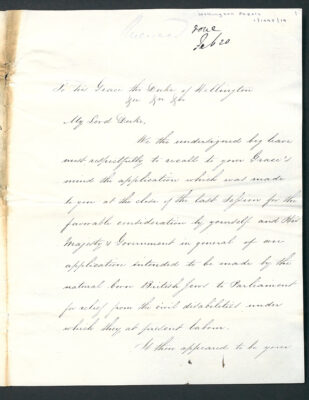 Wellington Papers
done
Feb 20
To His Grace the Duke of Wellington
&c &c &c
My Lord Duke,
We the undersigned beg leave
most respectfully to recall to your Grace's
mind the application which was made
to you at the close of the last Session for the
favorable consideration by yourself and His
Majesty's Government in general of an
application intended to be made by the
natural born British Jews to Parliament
for relief from the civil disabilities under
which they at present labour.
It then appeared to be your